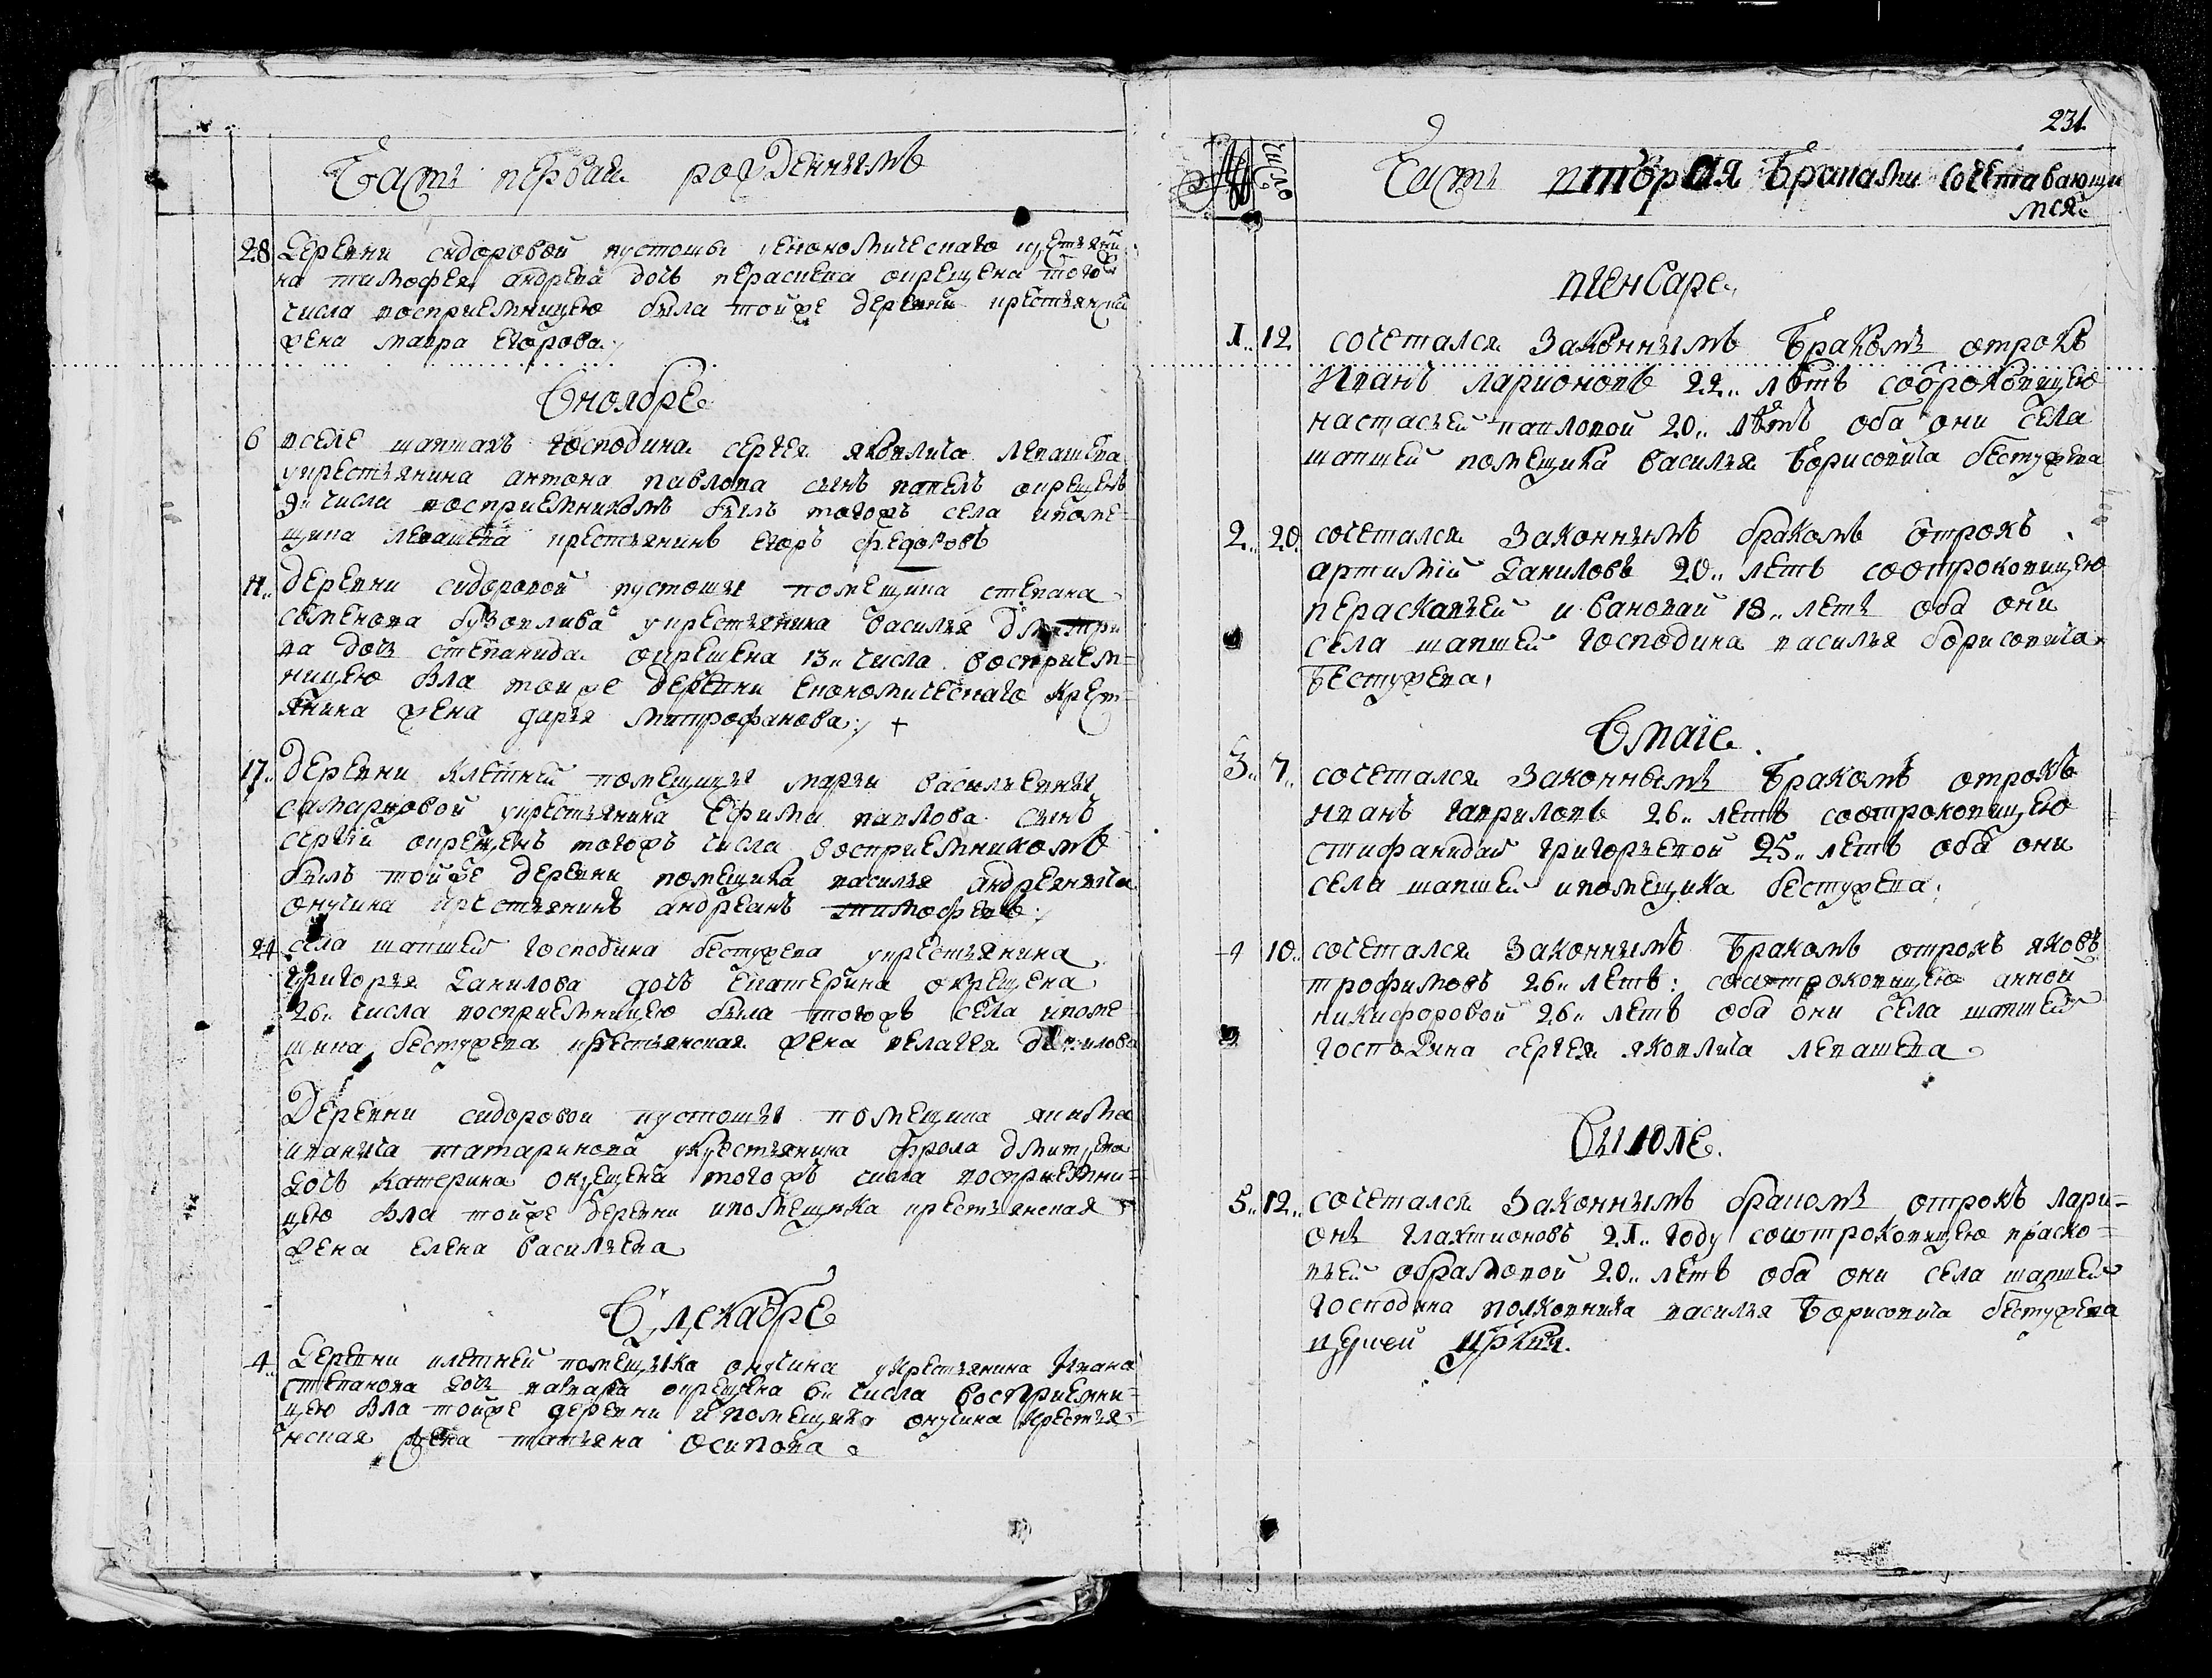 Часть первая рожденнымъ
28 Деревни сидоровой пустоши економическаго крестьяни
на тимофея андреева дочь параскева окрещена того
числа восприемницею была тойже деревни крестьянска
жена мавра егорова
Вноябре
6 вселе шапшахъ господина сергея яковлича левашева
укрестьянина антона павлова сынъ павелъ окрещенъ
9 числа восприемникомъ былъ тогожъ села ипоме-
щика левашева крестьянинъ егоръ федоровъ
11 деревни сидоровой пустоши помещика степана
семенова укрестьянина василья дмитри
ва дочь степанида окрещена 13 числа восприем=
ницею бла тойже деревни економическаго крест=
янина жена дарья митрофанова +
17 деревни клетней помещицы марьи васильевны
самариовой укрестьянина ефима павлова сынъ
сергий окрещенъ тогожъ числа восприемникомъ
былъ тойже деревни помещика василья андреянича
онучина крестьянинъ андреанъ тимофеевъ
24 села шапшей господина бестужева укрестьянина
григорья данилова дочь екатерина окрещена
26 числа восприемницею была тогожъ села ипоме
щика бестужева крестьянская жена пелагея данилова
Деревни сидоровой пустоши помещика якима
иванича татаринова укрестьянина фрола дмитриева
дочь катерина окрещена тогожъ числа восприемни=
цею бла тойже деревни ипомещика крестьянская
жена елена васильева
Вдекабре
4 Деревни клетней помещика онучина укрестьянина ивана
степанова дочь варвара окрещена 6 числа восприемни=
цею бла тойже деревни и помещика онучина крестья=
нская жена татьяна осипова
231
число
Часть вторая Браками сочетавающи
мся
вгенваре
1 12 сочетался законнымъ Бракомъ отрокъ
Иванъ ларионовъ 22 летъ соброковицею
настасьей павловой 20 летъ оба они села
шапшей помещика василья Борисовича бестужева
2 20 сочетался законнымъ бракомъ отрокъ
артимий Даниловъ 20 летъ соотроковицею
пераскавьей ивановай 18 летъ оба они
села шапшей господина василья борисовича
Бестужева
Вмаие
3 7 сочетался законнымъ Бракомъ отрокъ
иванъ гавриловъ 26 летъ соотроковицею
стифанидай григорьевой 25 летъ оба они
села шапшей ипомещика бестужева
4 10 сочетался законнымъ Бракомъ отрокъ яковъ
трофимовъ 26 летъ: соотроковицею анной
никифоровой 26 летъ оба они села шапшей
господина сергея яковлича левашева
Выюле
5 12 сочетался законнымъ бракомъ отрокъ лари=
онъ глахтионовъ 21 году соотроковицею праско=
вьей обрамовой 20 летъ оба они села шапшей
господина полковника василья Борисовича бестужева